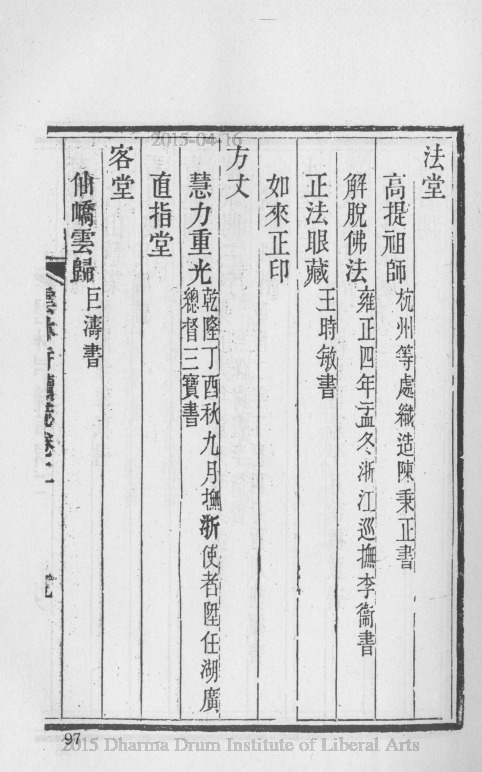 2015-04-16
法堂
高提祖師 杭州等處織造陳秉正書
解脫佛法 雍正四年孟冬浙江巡撫李衞書
正法眼藏 王時敏書
如來正印
方丈
慧力重光 乾隆丁酉秋九月撫浙使者陞任湖廣
總督三寶書
直指堂
客堂
仙嶠雲歸 巨濤書
雲林寺續志卷二
97
2015 Dharma Drum Institute of Liberal Arts